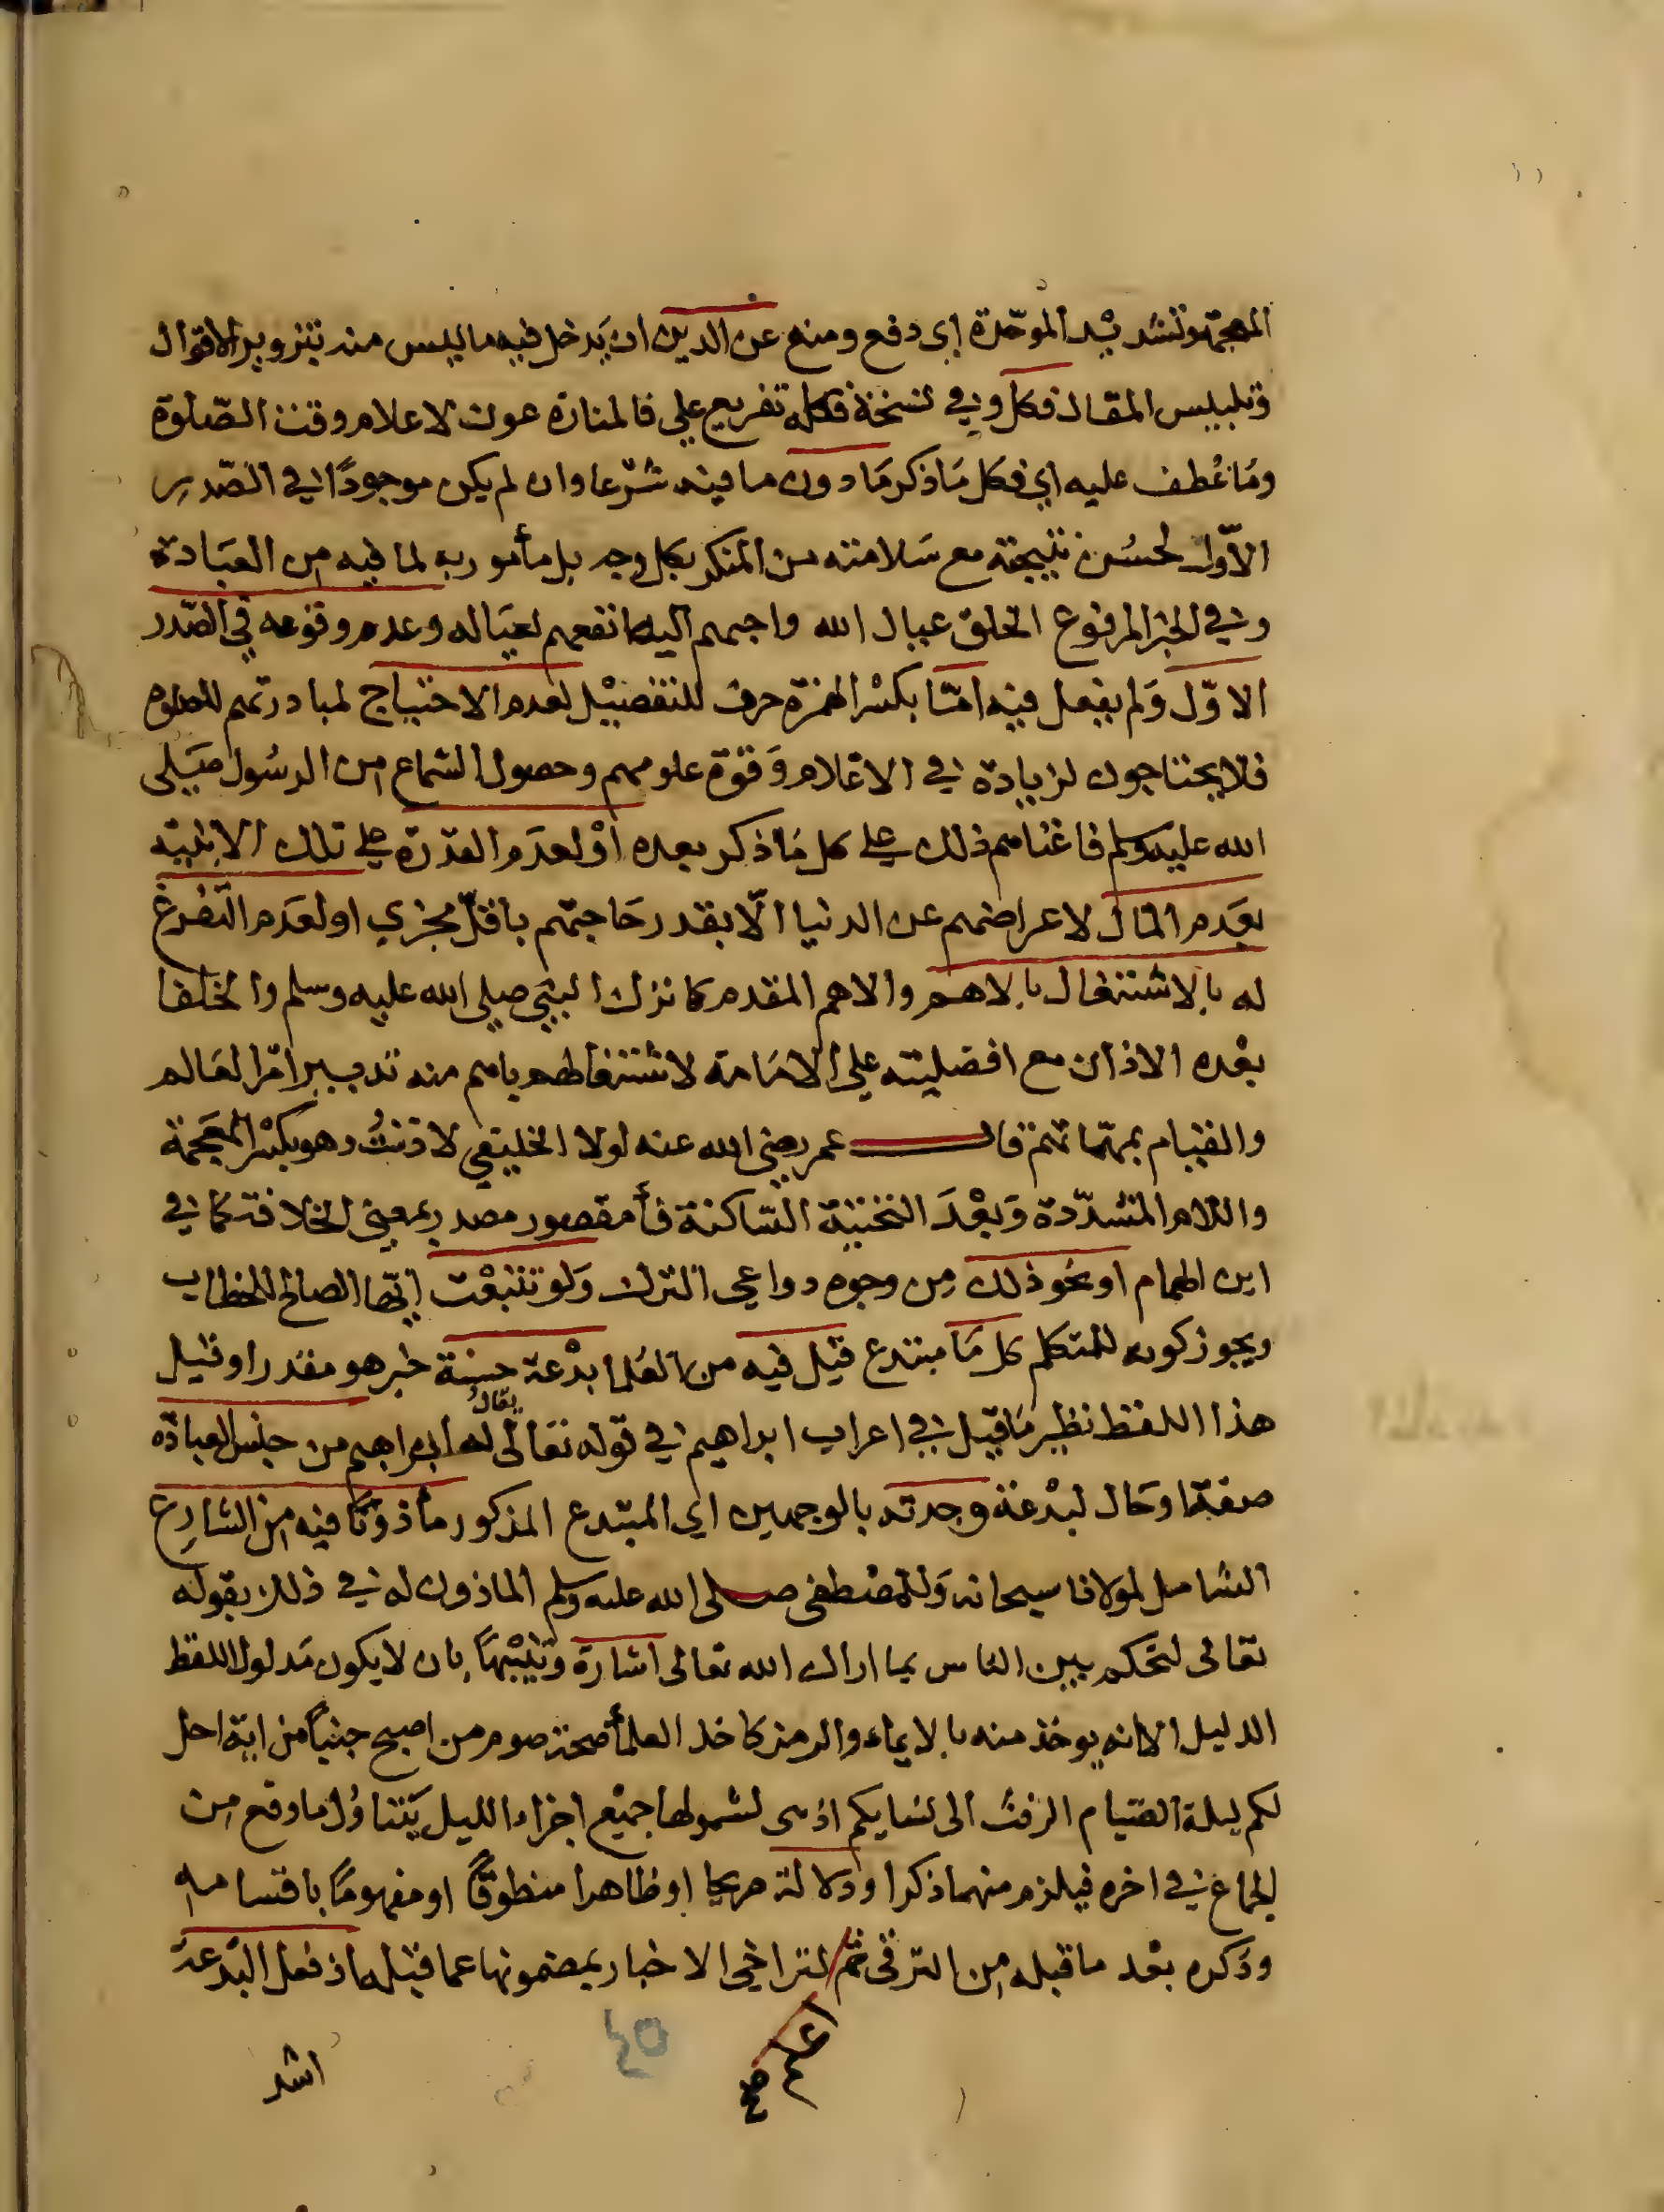 المعجمة وتشديد الموحّدة اي دفع ومنع عن الدين ان يَدخل فيه ما ليس منه بتزوير الاقوال
وتلبيس المقال فكل وفي نسخة فكله تفريع على فالمنارة عون لاعلام وقت الصّلوة
ومَا عُطف عليه اي فكل مَا ذكر مَاذون ما فيه شرّعا وان لم يكن موجودًا في الصّدر
الأوّل لحسُن نتيجته مع سَلامته من المنكر بكل وجه بل مأمور به لما فيه من العبَادة
وفي الخبر المرفوع الخلق عيال الله واحبهم اليه انفعهم لعيَاله وعدم وقوعه في الصّدر
الاوّل وَلم يفعل فيه امّا بكسْر الهمزة حرف للتفصيْل لعدم الاحتياج لمبادرتهم للعلوم
فلا يحتاجون لزيادة في الاعْلام وَقوة علومهم وحصول السّماع من الرسُول صَلى
الله عليه وسلم فاغناهم ذلك على كل مَا ذكر بعده اوْ لعدَم القدْرة على تلك الابنية
بعَدم المال لاعراضهم عن الدنيا الّا بقدر حَاجتهم باقلّ مجزي او لعدَم التفرغ
له بالاشتغال بالاهم والاهم المقدم كما ترك النبيّ صلى الله عليه وسلم والخلفا
بعْده الاذان مع افضليته على الامَامة لاشتغالهم باهم منه تدبير امْر العَالم
والقيام بمهمّاتهم قال عمر رضي الله عنه لولا الخليفى لاذنتُ وهو بكسْر المعجمة
واللام المشدّدة وَبعْدَ التحتية السّاكنة فأ مقصور مصدر بمعنى الخلافة كما في
ابن الهمام او نحو ذلك مِن وجوه دواعي الترك وَلو تتبعْت ايّها الصالح للخطاب
ويجوز كونه للمتكلم كل مَا مبتدع قيْل فيه من العُلما بدْعة حسنة خبر هو مقدر او قيل
هذا اللفظ نظير مَا قيل في اعراب ابراهيم في قوله تعالى يقالُ له ابراهيم من جنس العبادَة
صفة او حَال لبدْعة وجدته بالوجهين اي المبتدع المذكور مأذونًا فيه من الشارِع
الشامل لمولانا سبحانه وَللمصْطفى صلى الله عليه وسلم الماذون له في ذلك بقوله
تعالى لتَحكم بين الناس بما اراك الله تعالى اشارة وتنبْيهًا بان لا يكون مَدلول اللفظ
الدليل الا انه يوخذ منه بالايماء والرمز كاخذ العلمأ صحة صوم من اصبح جنباً من اية احل
لكم ليلة الصّيام الرفث الى نسَايكم اذ هى لشمولها جميْع اجزاء الليل يَتناوُل ما وقع من
الجماع في اخره فيلزم منهما ذكر او دلالة صريحا او ظاهرا منطوقًا او مفهومًا باقسامه
وذكره بعْد ما قبله من الترقى ثم لتراخي الاخبار بمضمونها عما قبله اذ فعل البدْعة
اعلم صح
اشد